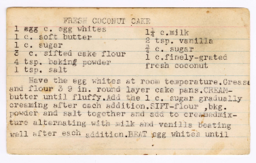 FRESH COCONUT CAKE
1 c. egg whites
1 c. soft butter
1 c. sugar
3 c. sifted cake flour
4 tsp. baking powder
1 tsp. salt
1¼ c. milk
2 tsp. vanilla
½ c. sugar
1 c. finely-grated
fresh coconut
Have the egg whites at room temperature. Grease
and flour 3 9 in. round layer cake pans. CREAM-
butter until fluffy. Add the 1 c. sugar gradually
creaming after each addition. SIFT-flour, bkg.
powder and salt together and add to creamed mix-
ture alternating with milk and vanilla beating
well after each addition. BEAT egg whites until